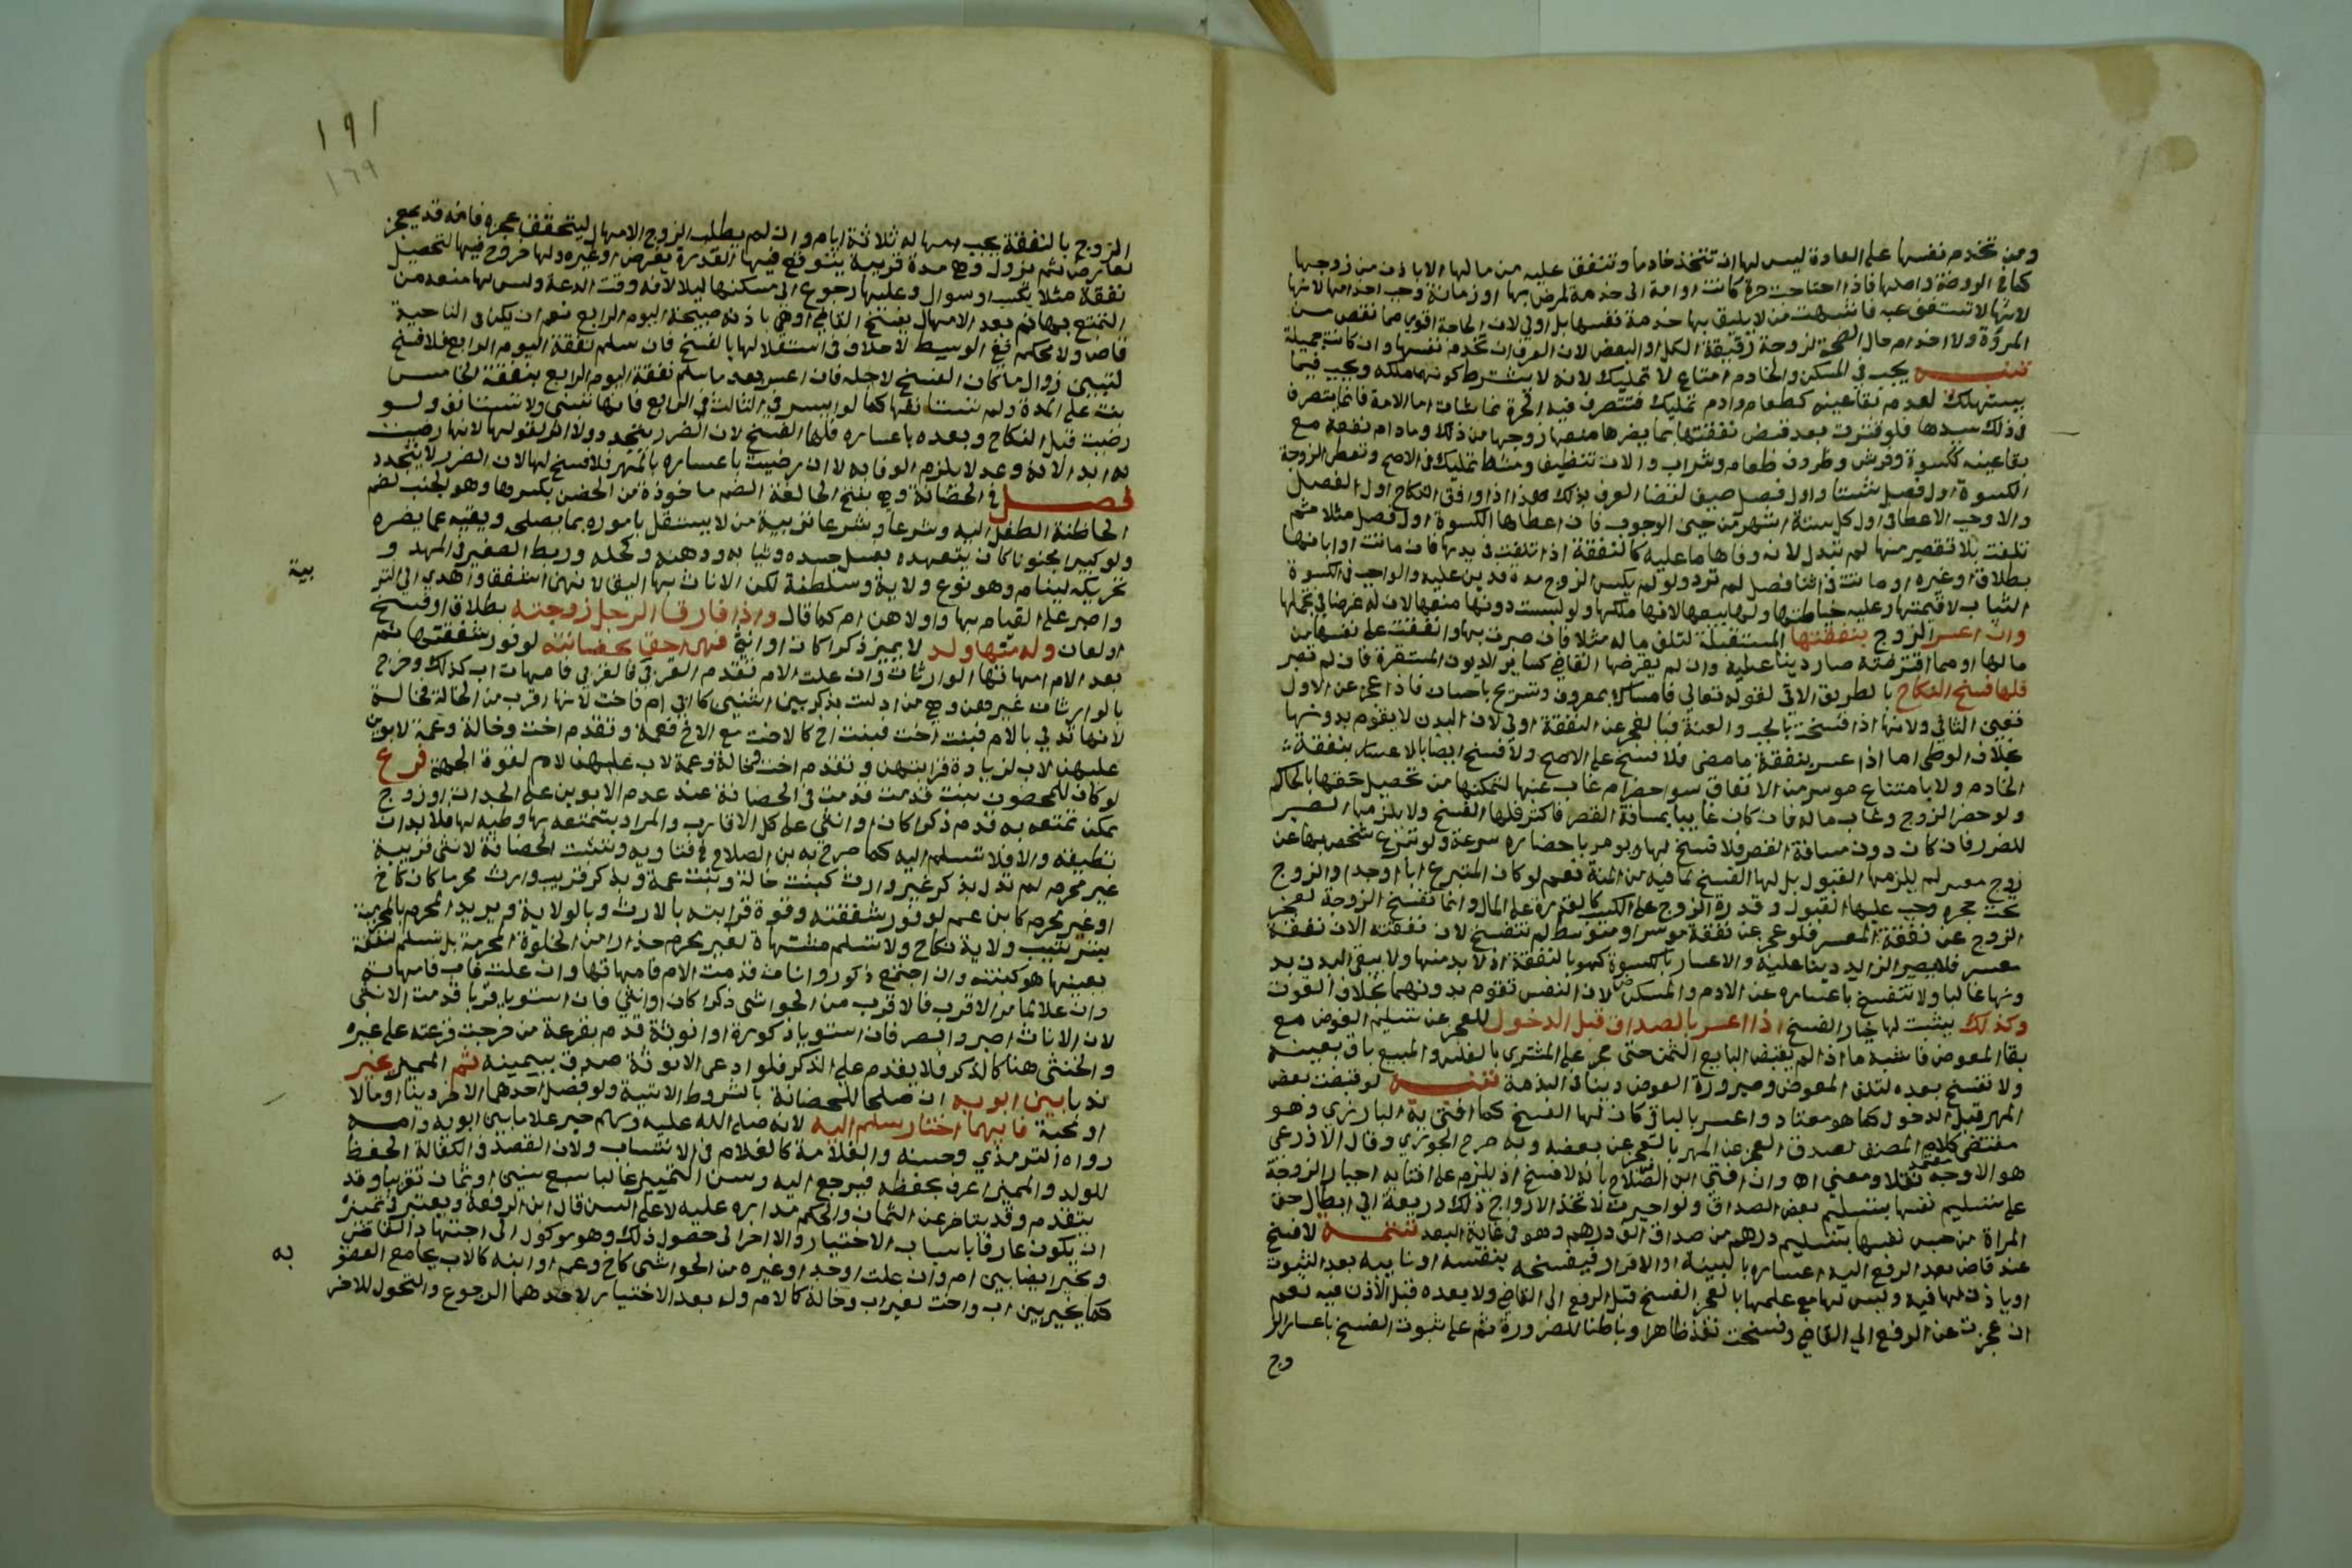 ومن تخدم نفسها على العادة ليس لها ان تتخذ خادما وتنفق عليه من مالها الا باذن من زوجها
كما في الروضة واصلها فاذا احتاجت حرة كانت او امة الى خدمة لمرض بها او زمانة وجب اخدامها لانها
لا تستغني عنه فاشبهت من لا يليق بها خدمة نفسها بل اولى لان الحاجة اقوى مما نقص من
المروة ولا اخدام حال الصحة لزوجة رقيقة الكل او البعض لان العرف ان تخدم نفسها وان كانت جميلة
تنبيه يجب في المسكن والخادم امتاع لا تمليك لانه لا يشترط كونهما ملكه ويجب فيما
يستهلك لعدم بقا عينه كطعام وادم تمليك فتتصرف فيه الحرة بما شات اما الامة فانما يتصرف
في ذلك سيدها فلو قترت بعد قبض نفقتها بما يضرها منعها زوجها من ذلك وما دام نفعه مع
بقا عينه ككسوة وفرش وظروف طعام وشراب والات تنظيف ومشط تمليك في الاصح وتعطى الزوجة
الكسوة اول فصل شتا واول فصل صيف لقضا العرف بذلك هذا اذا وافق النكاح اول الفصل
والا وجب الاعطا في اول كل ستة اشهر من حين الوجوب فان اعطاها الكسوة اول فصل مثلا ثم
تلفت بلا تقصير منها لم تبدل لانه وفاها ما عليه كالنفقة اذا تلفت في يدها فان ماتت او ابانها
بطلاق او غيره او مات في اثنا فصل لم ترد ولو لم يكس الزوج مدة فدين عليه والواجب في الكسوة
الثياب لا قيمتها وعليه خياطتها ولها بيعها لانها ملكها ولو لبست دونها منعها لان له غرضا في تجملها
وان اعسر الزوج بنفقتها المستقبلة لتلف ماله مثلا فان صبرت بها وانفقت على نفسها من
مالها او مما اقترضته صار دينا عليه وان لم يفرضها القاضي كساير الديون المستقرة فان لم تصبر
فلها فسخ النكاح بالطريق الاتي لقوله تعالى فامساك بمعروف وتسريح باحسان فاذا عجز عن الاول
تعين الثاني ولانها اذا فسخت بالجب والعنة فبالعجز عن النفقة اولى لان البدن لا يقوم بدونها
بخلاف الوطي اما اذا عسر بنفقة ما مضى فلا فسخ على الاصح ولا فسخ ايضا بالاعسار بنفقة
الخادم ولا بامتناع موسر من الانفاق سوا حضر ام غاب عنها لتمكنها من تحصيل حقها بالحاكم
ولو حضر الزوج وغاب ماله فان كان غايبا بمسافة القصر فاكثر فلها الفسخ ولا يلزمها الصبر
للضرر فان كان دون مسافة القصر فلا فسخ لها ويومر باحضاره بسرعة ولو تبرع شخص بها عن
زوج معسر لم يلزمها القبول بل لها الفسخ لما فيه من المنة نعم لو كان المتبرع ابا او جدا والزوج
تحت حجره وجب عليها القبول وقدرة الزوج على الكسب كالقدرة على المال وانما تفسخ الزوجة لعجز
الزوج عن نفقة المعسر فلو عجز عن نفقة موسر او متوسط لم تنفسخ لان نفقته الان نفقة
معسر فلا يصير الزايد دينا عليه والاعسار بالكسوة كهو بالنفقة اذ لا بد منها ولا يبقى البدن بد
ونها غالبا ولا تنفسخ باعساره عن الادم والمسكن لان النفس تقوم بدونهما بخلاف القوت
وكذلك يثبت لها خيار الفسخ اذا اعسر بالصداق قبل الدخول للعجز عن تسليم العوض مع
بقا المعوض فاشبه ما اذا لم يقبض البايع الثمن حتى حجر على المشتري بالفلس والمبيع باق بعينه
ولا تفسخ بعده لتلف المعوض وصيرورة العوض دينا في الذمة تنبيه لو قبضت بعض
المهر قبل الدخول كما هو معتاد واعسر بالباقي كان لها الفسخ كما افتى به البارزي وهو
مقتضى كلام المصنف لصدق العجز عن المهر بالعجز عن بعضه وبه صرح الجوزي وقال الاذرعي
هو الاوجه نقلا ومعنى اه وان افتى ابن الصلاح بانه لا فسخ اذ يلزم على افتايه اجبار الزوجة
على تسليم نفسها بتسليم بعض الصداق ولو اجبرت لاتخذ الازواج ذلك ذريعة الى ابطال حق
المراة من حبس نفسها بتسليم درهم من صداق الف درهم وهو في غاية البعد تتمة لا فسخ
عند قاض بعد الرفع اليه اعساره بالبينة او الاقرار فيفسخه بنفسه او نايبه بعد الثبوت
او ياذن لها فيه وليس لها مع علمها بالعجز الفسخ قبل الرفع الى القاضي ولا بعده قبل الاذن فيه نعم
ان عجزت عن الرفع الى القاضي وفسخت نفذ ظاهرا وباطنا للضرورة ثم على ثبوت الفسخ باعسار الز
وج
١٩١
١٦٩
الزوج بالنفقة يجب امهاله ثلاثة ايام وان لم يطلب الزوج الامهال ليتحقق عجزه فانه قد يعجز
لعارض ثم يزول وهي مدة قريبة يتوقع فيها القدرة بقرض او غيره ولها خروج فيها لتحصيل
نفقة مثلا بكسب او سوال وعليها رجوع الى مسكنها ليلا لانه وقت الدعة وليس لها منعه من
التمتع بها ثم بعد الامهال يفسخ القاضي او هي باذنه صبيحة اليوم الرابع نعم ان لم يكن في الناحية
قاض ولا محكم ففي الوسيط لا خلاف في استقلالها بالفسخ فان سلم نفقة اليوم الرابع فلا فسخ
لتبين زوال ما كان الفسخ لاجله فان اعسر بعد ما سلم نفقة اليوم الرابع بنفقة الخامس
بنت على المدة ولم تستانفها كما لو ايسر في الثالث في الرابع فانها تبني ولا تستانف ولو
رضيت قبل النكاح وبعده باعساره فلها الفسخ لان الضرر يتجدد ولا اثر لقولها لانها رضيت
به ابدا لانه وعد لا يلزم الوفا به لا ان رضيت باعساره بالمهر فلا فسخ لها لان الضرر لا يتجدد
فصل في الحضانة وهي بفتح الحا لغة الضم ماخوذة من الحضن بكسرها وهو الجنب لضم
الحاضنة الطفل اليه وشرعا تربية من لا يستقل باموره بما يصلحه ويقيه عما يضره
ولو كبيرا مجنونا كان يتعهده بغسل جسده وثيابه ودهنه وكحله وربط الصغير في المهد و
تحريكه لينام وهو نوع ولاية وسلطنة لكن الاناث بها اليق لانهن اشفق واهدى الى التر
بية
واصبر على القيام بها واولاهن ام كما قال واذا فارق الرجل زوجته بطلاق او فسخ
او لعان وله منها ولد لا يميز ذكرا كان او انثى فهي احق بحضانته لوفور شفقتها ثم
بعد الام امهاتها الوارثات وان علت الام تقدم القربى فالقربى فامهات اب كذلك وخرج
بالوارثات غيرهن وهي من ادلت بذكر بين انثيين كام ابي ام فاخت لانها اقرب من الخالة فخالة
لانها تدلي بالام فبنت اخت فبنت اخ كالاخت مع الاخ فعمة وتقدم اخت وخالة وعمة لابوين
عليهن لاب لزيادة قرابتهن وتقدم اخت وخالة وعمة لاب عليهن لام لقوة الجهة فرع
لو كان للمحضون بنت قدمت في الحضانة عند عدم الابوين على الجدات او زوج
يمكن تمتعه به قدم ذكرا كان او انثى على كل الاقارب والمراد بتمتعه بها وطيه لها فلا بد ان
تطيقه والا فلا تسلم اليه كما صرح به ابن الصلاح في فتاويه وتثبت الحضانة لانثى قريبة
غير محرم لم تدل بذكر غير وارث كبنت خالة وبنت عمة ولذكر قريب وارث محرما كان كاخ
او غير محرم كابن عم لوفور شفقته وقوة قرابته بالارث وبالولاية ويزيد المحرم بالمحرمية
بترتيب ولاية نكاح ولا تسلم مشتهاة لغير محرم حذرا من الخلوة المحرمة بل تسلم لثقة
يعينها هو كبنته وان اجتمع ذكور واناث قدمت الام فامهاتها وان علت فاب فامهاته
وان علا لما مر الاقرب فالاقرب من الحواشي ذكرا كان او انثى فان استويا قربا قدمت الانثى
لان الاناث اصبر وابصر فان استويا ذكورة او انوثة قدم بقرعة من خرجت قرعته على غيره
والخنثى هنا كالذكر فلا يقدم على الذكر فلو ادعى الانوثة صدق بيمينه ثم المميز يخير
ندبا بين ابويه ان صلحا للحضانة بالشروط الاتية ولو فضل احدهما الاخر دينا او مالا
او محبة فايهما اختار سلم اليه لانه صلى الله عليه وسلم خير غلاما بين ابيه وامه
رواه الترمذي وحسنه والغلامة كالغلام في الانتساب ولان القصد في الكفالة الحفظ
للولد والمميز اعرف بحفظه فيرجع اليه وسن التمييز غالبا سبع سنين او ثمان تقريبا وقد
يتقدم وقد يتاخر عن الثمان والحكم مداره عليه لا على السن قال ابن الرفعة ويعتبر في تمييزه
ان يكون عارفا باسباب الاختيار والا اخر الى حصول ذلك وهو موكول الى اجتهاد القاضي
ويخير ايضا بين ام وان علت وجد او غيره من الحواشي كاخ وعم او ابنه كالاب بجامع العصو
به
كما يخير بين اب واخت لغير اب وخالة كالام وله بعد الاختيار لاحدهما الرجوع والتحول للاخر